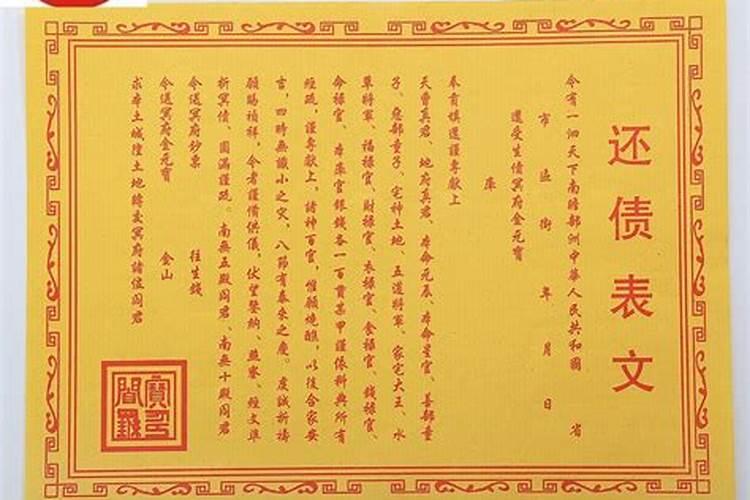 还债表文
今有一泗天下南瞻部洲中華人民共和國 省
市 區 街 年 月 日
還受生債冥府金元寶
庫
奉育填還謹專獻上
天曹真君、地府真君、本命元辰、本命星官、善部童
子、惡部童子、宅神土地、五道將軍、家宅大王、水
草將軍、福祿官、財祿官、衣祿官、食祿官、錢祿官、
命祿官、本庫官銀錢各一百貫某甲謹依科典所有
經疏，謹專獻上，諸神百官，惟願燒醮，以後合家安
吉，四時無讖小之灾，八節有泰來之慶。虔誠祈禱
願賜禎祥，令者謹備供儀，伏望鑒納、燕寮、經文準
折冥債、圓滿謹疏。南無五殿閻君、南無十殿閻君
今送冥府鈔票 往生錢
今送冥府金元寶 金山
求本土城隍土地轉交冥府諸位閻君